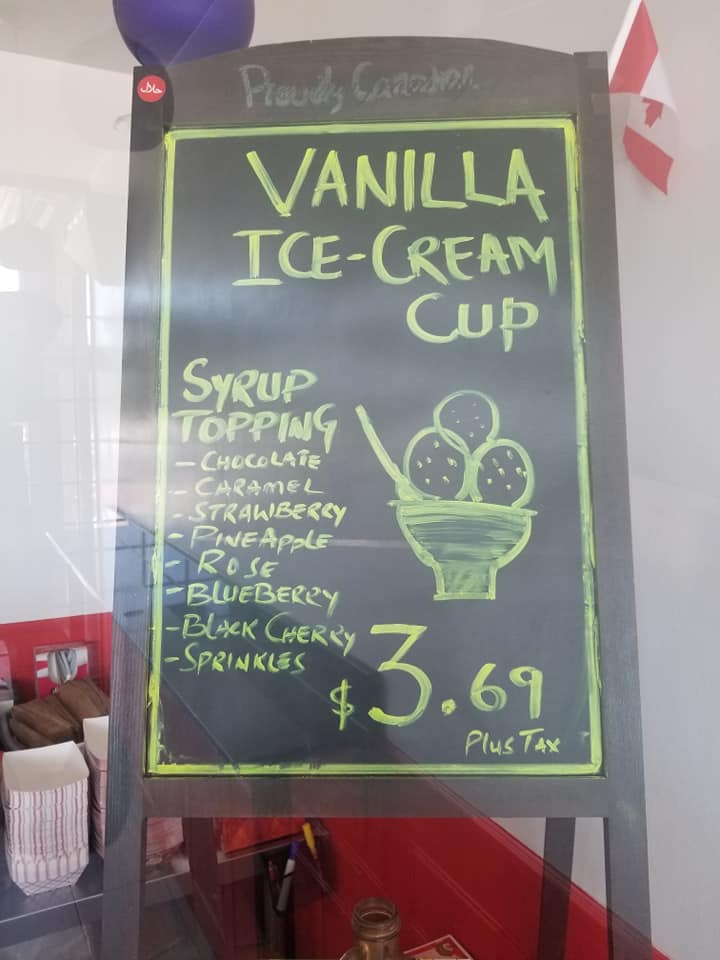 Proudly Canadian
VANILLA
ICE-CREAM
CUP
SYRUP
TOPPING
- CHOCOLATE
- CARAMEL
- STRAWBERRY
- PINEAPPLE
- ROSE
- BLUEBERRY
- BLACK CHERRY
- SPRINKLES
$3.69
Plus Tax